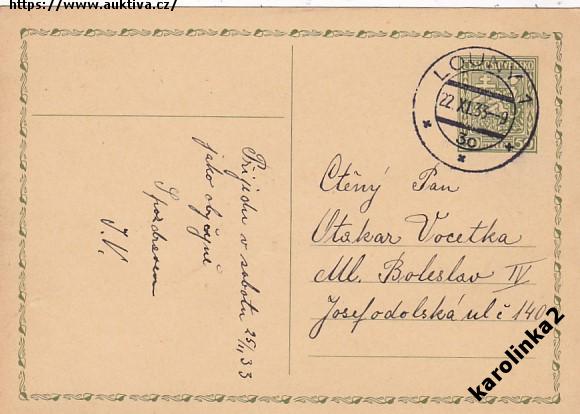 https://www.auktiva.cz/
LOUKY
22.XI.33-9
30
Přijedu v sobotu 25/11 33
jako obyčejně
S pozdravem
J.V.
Ctěný Pan
Otakar Vocetka
Ml. Boleslav IV
Josefodolská ul č 140
karolinka2